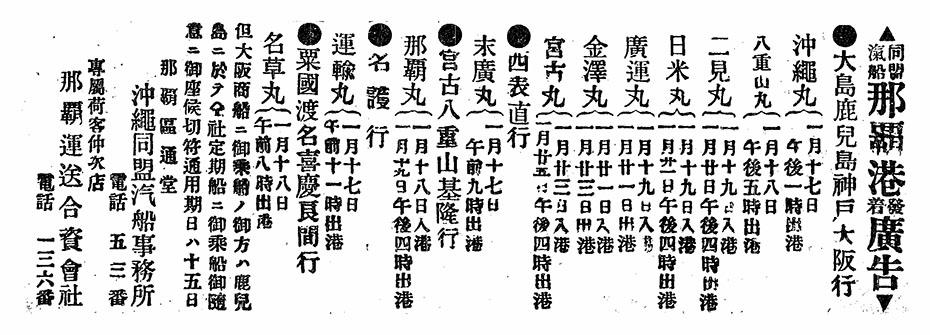 ▲同盟滊船那覇港發着廣告▼
●大島鹿兒島神戸大阪行
沖繩丸 一月十七日午後一時出港
八重山丸 一月十八日午後五時出港
二見丸 一月十九日入港
一月廿日午後四時出港
日米丸 一月十九日入港
一月廿一日午後四時出港
廣運丸 一月十九日入港
一月廿一日出港
金澤丸 一月廿一日入港
一月廿三日出港
宮古丸 一月廿三日入港
一月廿五日午後四時出港
●西表直行
末廣丸 一月十七日午前九時出港
●宮古八重山基隆行
那覇丸 一月十八日入港
一月十九日午後四時出港
●名護行
運輸丸 一月十七日午前十一時出港
●粟國渡名喜慶良間行
名草丸 一月十八日午前八時出港
但大阪商船ニ御乘船ノ御方ハ鹿兒
島ニ於テ仝社定期船ニ御乘船御隨
意ニ御座候切符通用期日ハ十五日
那覇區通堂
沖繩同盟汽船事務所
電話 五三番
專屬荷客仲次店
那覇運送合資會社
電話 一三六番